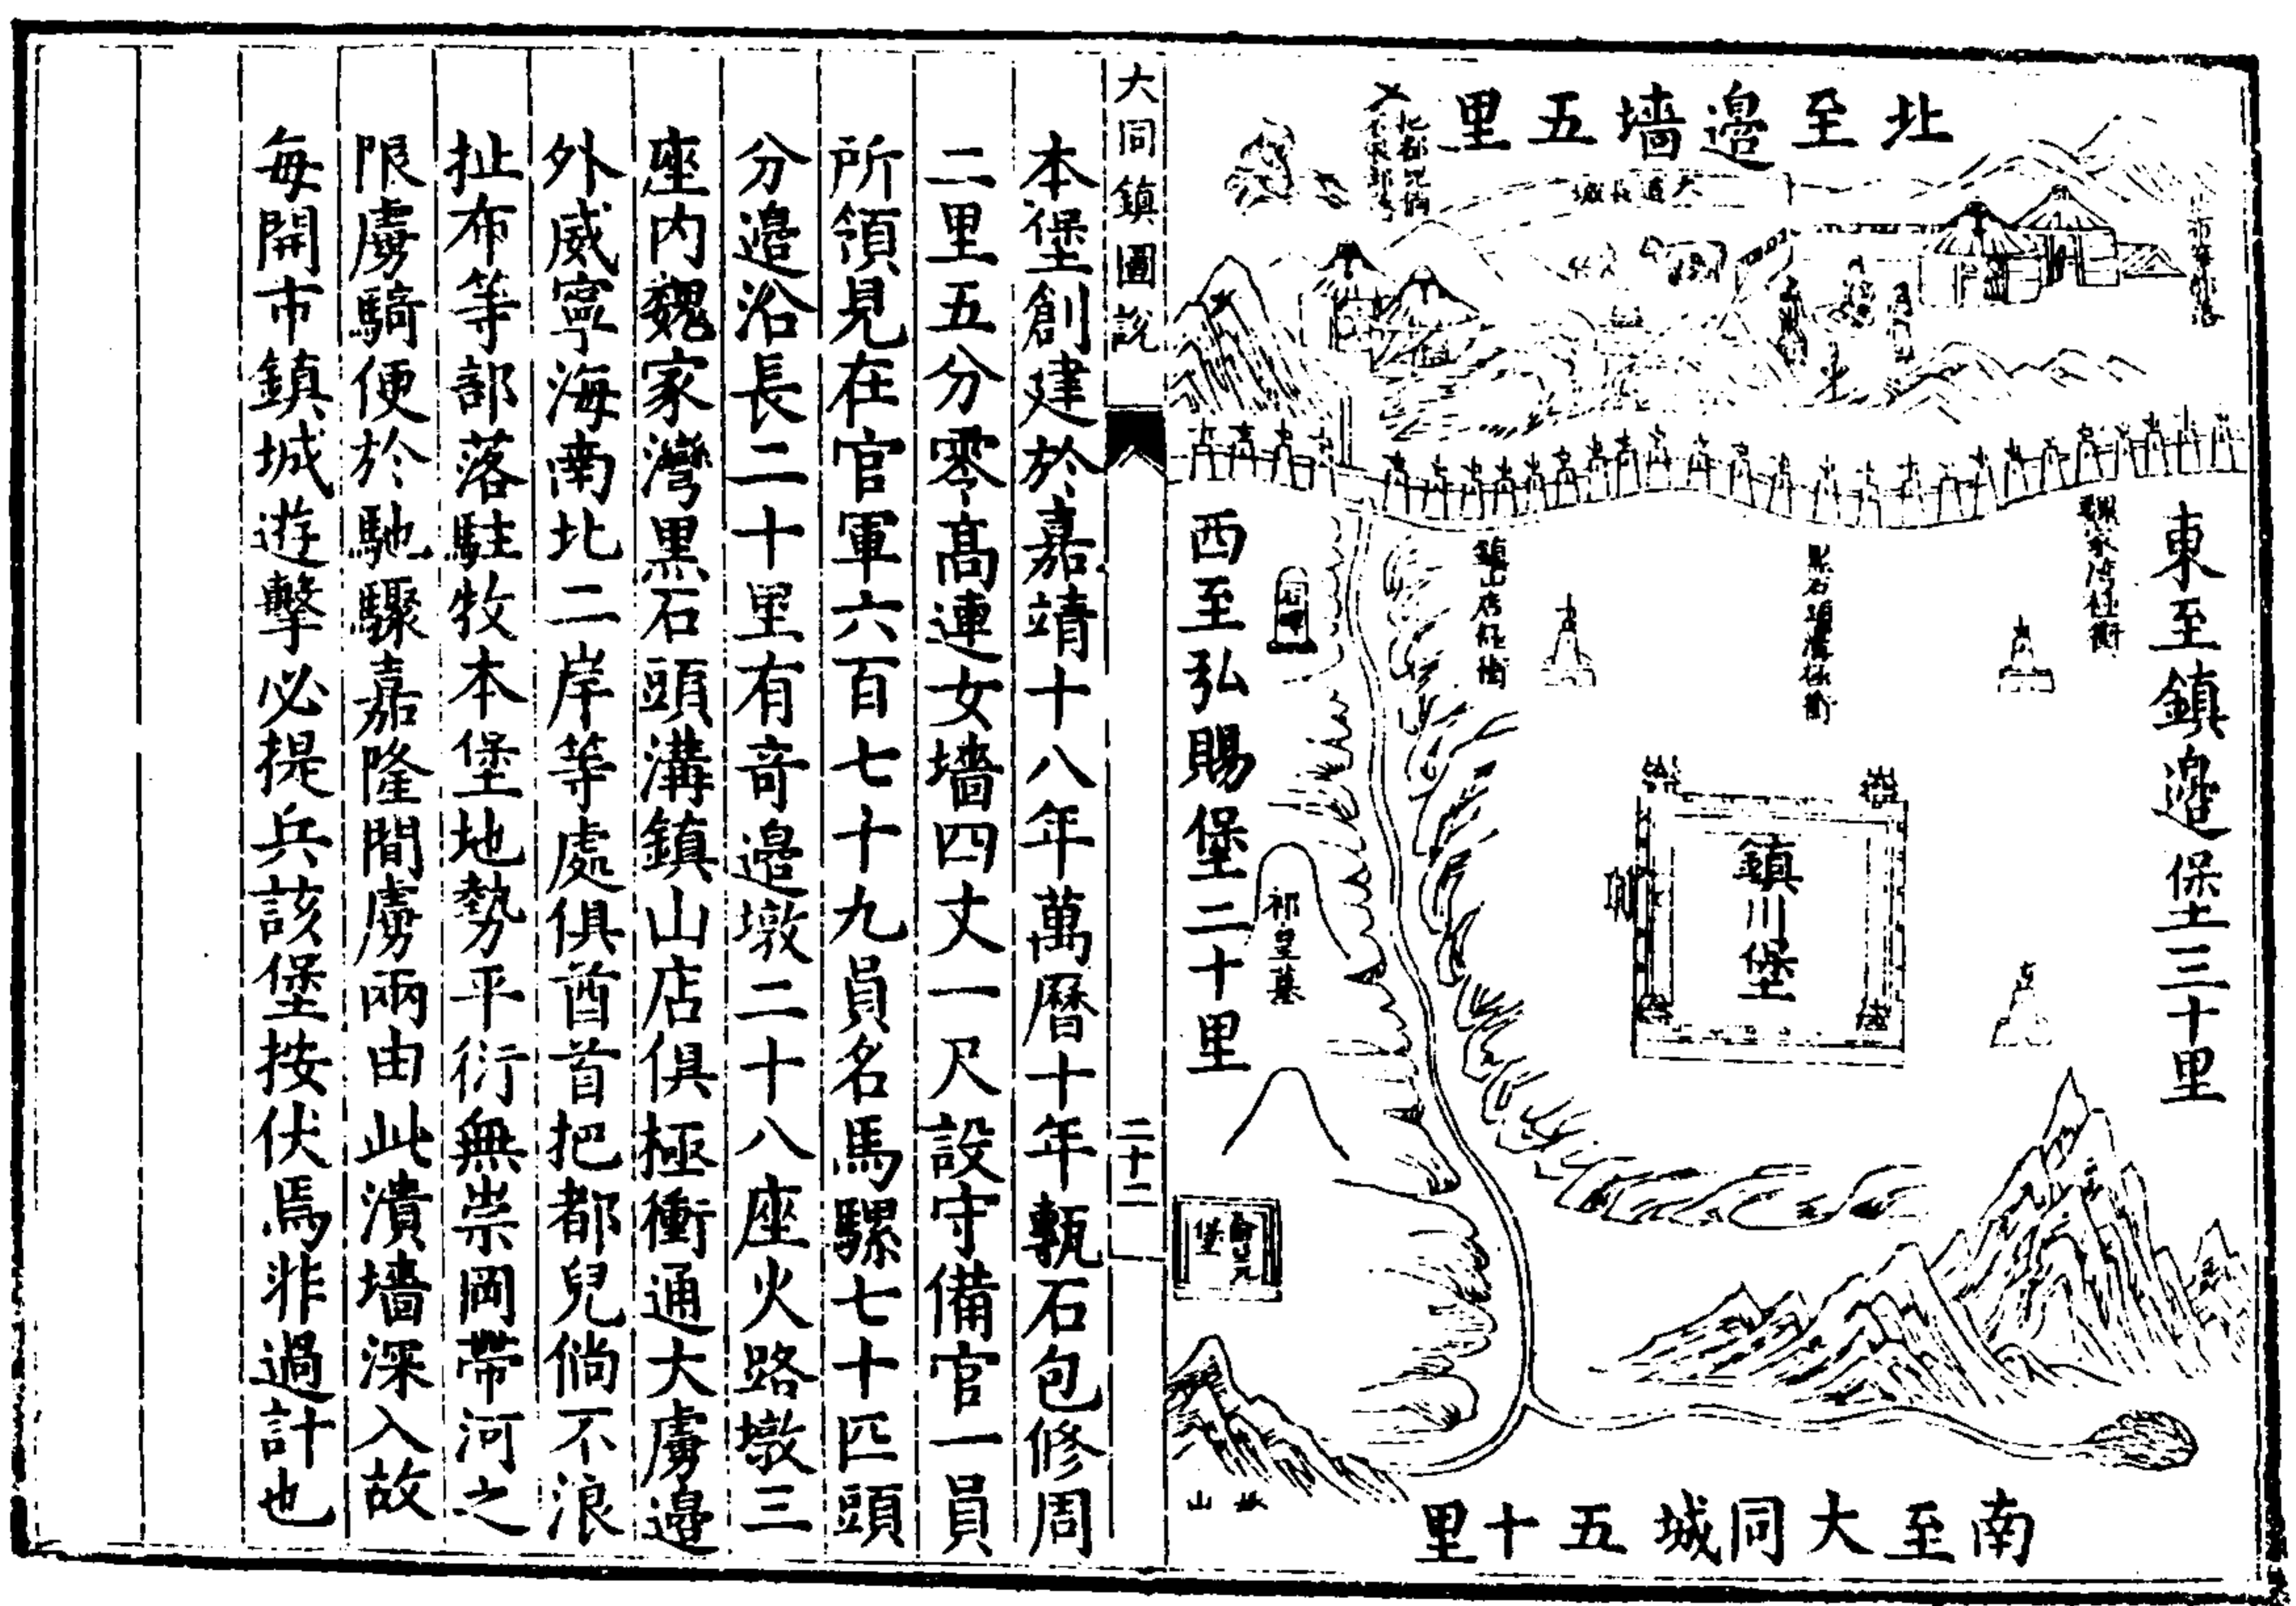 北至邊墻五里
大邊長城
東至鎮邊堡三十里
西至弘賜堡二十里
南至大同城五十里
鎮川堡
魏家灣極衝
黑石頭溝極衝
鎮山店極衝
石碑
祁皇墓
大同鎮圖說
二十二
本堡創建於嘉靖十八年萬曆十年甎石包修周
二里五分零高連女墻四丈一尺設守備官一員
所領見在官軍六百七十九員名馬騾七十匹頭
分邊沿長二十里有竒邊墩二十八座火路墩三
座内魏家灣黑石頭溝鎮山店俱極衝通大虜邊
外威寧海南北二岸等處俱酋首把都兒倘不浪
扯布等部落駐牧本堡地勢平衍無崇岡帶河之
限虜騎便於馳驟嘉隆間虜兩由此潰墻深入故
每開市鎮城遊擊必提兵該堡按伏焉非過計也